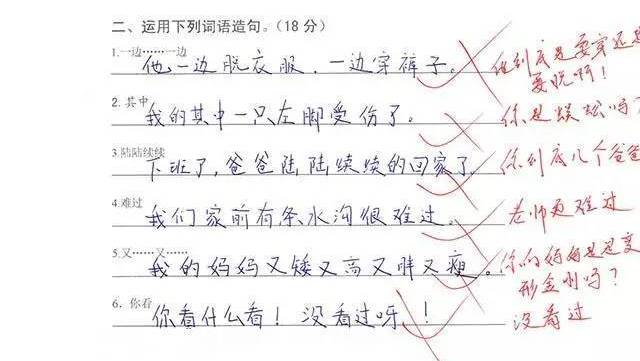 二、运用下列词语造句。(18分)
1.一边……一边
他一边脱衣服，一边穿裤子。
他到底是要穿还是
要脱啊！
2. 其中
我的其中一只左脚受伤了。
你是蜈蚣吗？
3.陆陆续续
下班了，爸爸陆陆续续的回家了
你到底几个爸爸
4.难过
我们家前有条水沟很难过。
老师更难过
5.又……又……
我的妈妈又矮又高又胖又瘦。
你的妈妈是是变
形金刚吗？
6. 你看
你看什么看！没看过呀！！
没看过